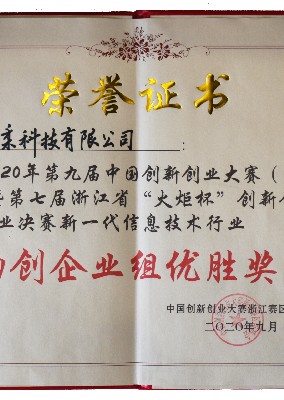 荣誉证书
科技有限公司：
20年第九届中国创新创业大赛（
第七届浙江省“火炬杯”创新
业决赛新一代信息技术行业
创企业组优胜奖
中国创新创业大赛浙江赛区
二〇二〇年九月